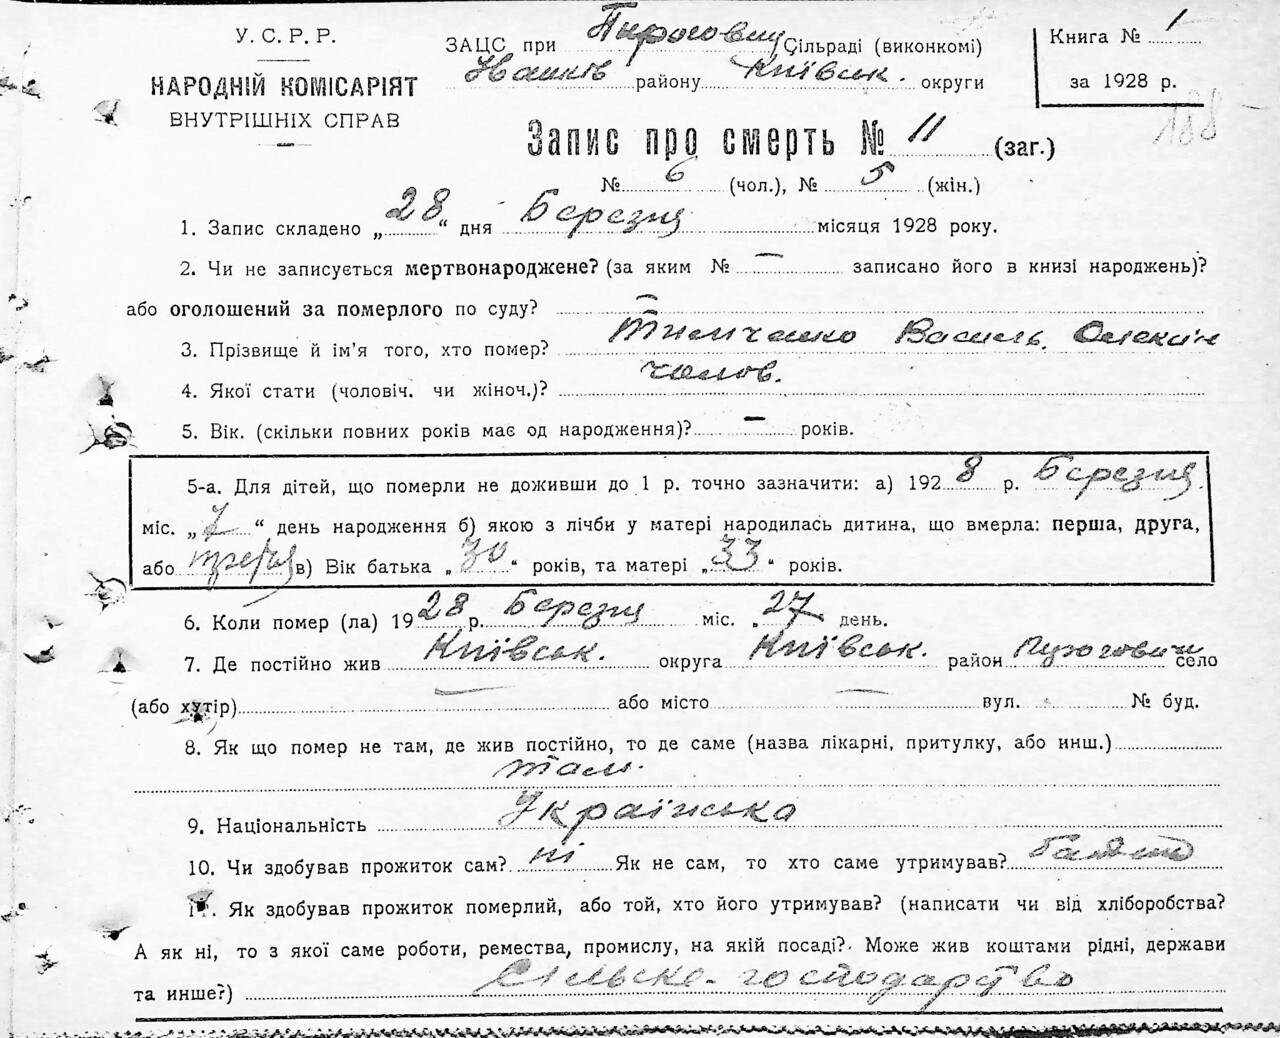 У. С. Р. Р.
НАРОДНІЙ КОМІСАРІЯТ
ВНУТРІШНІХ СПРАВ
ЗАЦС при Пирогович Сільраді (виконкомі)
району Київськ. округи
Книга № 1
за 1928 р.
188
Запис про смерть № 11 (заг.)
№ 6 (чол.), № 5 (жін.)
1. Запис складено „28“ дня Березня місяця 1928 року.
2. Чи не записується мертвонароджене? (за яким № — записано його в книзі народжень)?
або оголошений за померлого по суду? —
3. Прізвище й ім'я того, хто помер? Тимченко Василь
4. Якої стати (чоловіч. чи жіноч.)? чолов.
5. Вік. (скільки повних років має од народження)? — років.
5-а. Для дітей, що померли не доживши до 1 р. точно зазначити: а) 1928 р. Березня
міс. „7“ день народження б) якою з лічби у матері народилась дитина, що вмерла: перша, друга,
або третя в) Вік батька „30“ років, та матері „33“ років.
6. Коли помер (ла) 1928 р. Березня міс. „27 день.
7. Де постійно жив Київськ. округа Київськ. район Пирогович село
(або хутір) — або місто — вул. № буд.
8. Як що помер не там, де жив постійно, то де саме (назва лікарні, притулку, або инш.)
там.
9. Національність Українська
10. Чи здобував прожиток сам? ні Як не сам, то хто саме утримував? батько
11. Як здобував прожиток померлий, або той, хто його утримував? (написати чи від хліборобства?
А як ні, то з якої саме роботи, ремества, промислу, на якій посаді? Може жив коштами рідні, держави
та инше?) Сільске-господарство